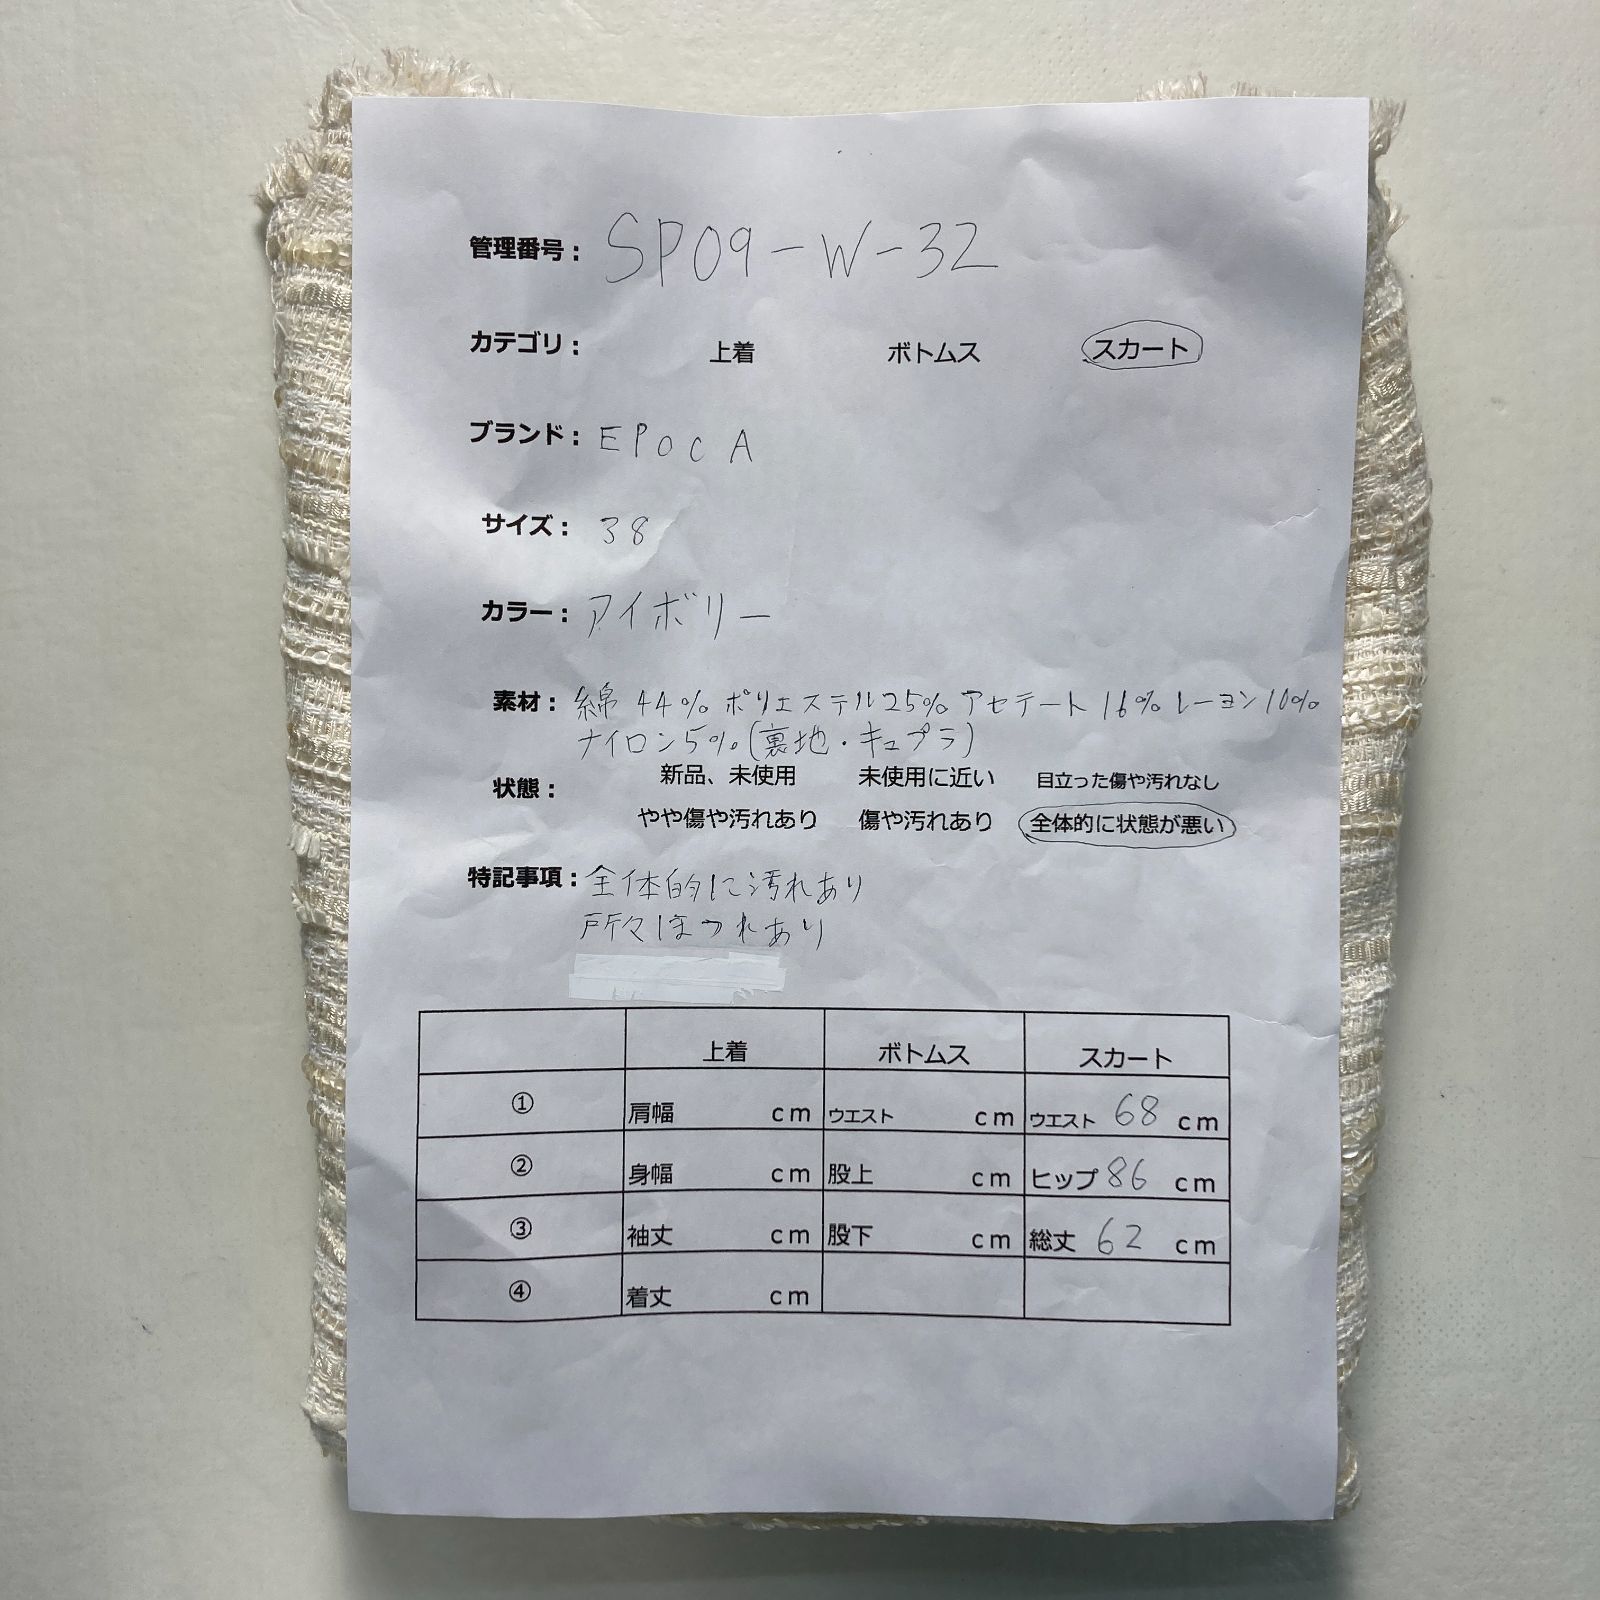 管理番号： SP09-W-32
カテゴリ： 上着 ボトムス スカート
ブランド： EPOCA
サイズ： 38
カラー： アイボリー
素材： 綿44% ポリエステル25% アセテート16% レーヨン10%
ナイロン5%(裏地・キュプラ)
状態： 新品、未使用 未使用に近い 目立った傷や汚れなし
やや傷や汚れあり 傷や汚れあり 全体的に状態が悪い
特記事項： 全体的に汚れあり
所々ほつれあり
上着 ボトムス スカート
① 肩幅 cm ウエスト cm ウエスト 68 cm
② 身幅 cm 股上 cm ヒップ 86 cm
③ 袖丈 cm 股下 cm 総丈 62 cm
④ 着丈 cm